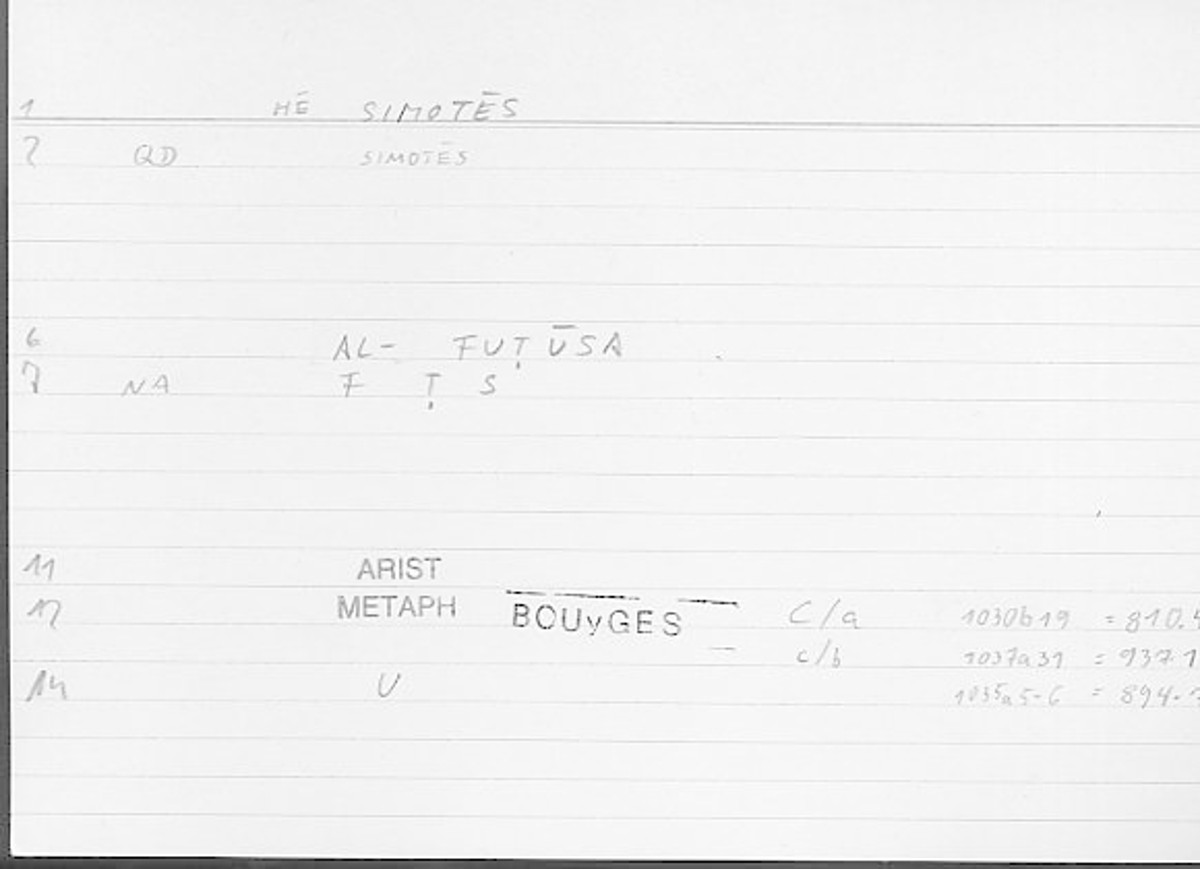 1 HĒ SIMOTĒS
2 QD SIMOTĒS
6 AL- FUṬŪSA
7 NA F Ṭ S
11 ARIST
12 METAPH BOUyGES C/a 1030b19 = 810.4
c/b 1037a31 = 937.1
14 U 1035a5-6 = 894.